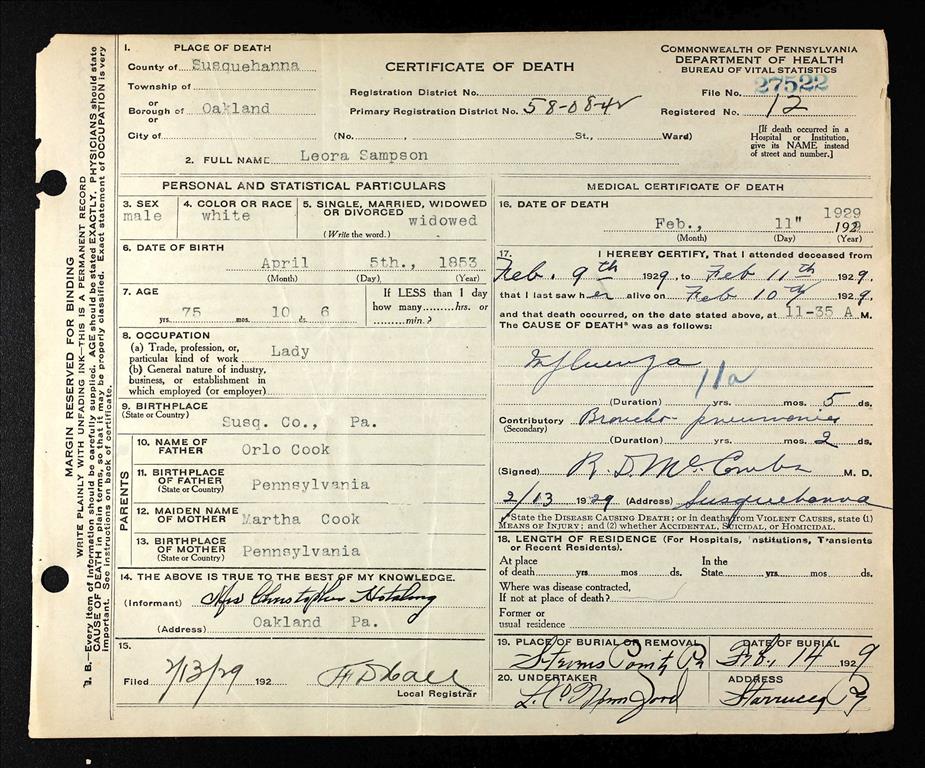 1. PLACE OF DEATH
County of Susquehanna
Township of
or
Borough of Oakland
or
City of (No. , St., Ward)
CERTIFICATE OF DEATH
Registration District No.
Primary Registration District No. 58-08-42
COMMONWEALTH OF PENNSYLVANIA
DEPARTMENT OF HEALTH
BUREAU OF VITAL STATISTICS
File No. 27522
Registered No. 12
[If death occurred in a
Hospital or Institution,
give its NAME instead
of street and number.]
2. FULL NAME Leora Sampson
MARGIN RESERVED FOR BINDING
WRITE PLAINLY WITH UNFADING INK—THIS IS A PERMANENT RECORD
B.—Every item of Information should be carefully supplied. AGE should be stated EXACTLY. PHYSICIANS should state
CAUSE OF DEATH in plain terms, so that it may be properly classified. Exact statement of OCCUPATION is very
important. See instructions on back of certificate.
PERSONAL AND STATISTICAL PARTICULARS
3. SEX
male
4. COLOR OR RACE
white
5. SINGLE, MARRIED, WIDOWED
OR DIVORCED
widowed
(Write the word.)
6. DATE OF BIRTH
April 5th., 1853
(Month) (Day) (Year)
7. AGE
75 yrs. 10 mos. 6 ds.
If LESS than 1 day
how many hrs. or
min.?
8. OCCUPATION
(a) Trade, profession, or
particular kind of work Lady
(b) General nature of industry,
business, or establishment in
which employed (or employer)
9. BIRTHPLACE
(State or Country)
Susq. Co., Pa.
PARENTS
10. NAME OF
FATHER Orlo Cook
11. BIRTHPLACE
OF FATHER
(State or Country) Pennsylvania
12. MAIDEN NAME
OF MOTHER Martha Cook
13. BIRTHPLACE
OF MOTHER
(State or Country) Pennsylvania
14. THE ABOVE IS TRUE TO THE BEST OF MY KNOWLEDGE.
(Informant) Mrs Christopher
(Address) Oakland Pa.
15.
Filed 2/13/29 192
Local Registrar
MEDICAL CERTIFICATE OF DEATH
16. DATE OF DEATH
1929
Feb., 11" 1929
(Month) (Day) (Year)
17. I HEREBY CERTIFY, That I attended deceased from
Feb. 9th 1929, to Feb 11th 1929,
that I last saw her alive on Feb 10 1929,
and that death occurred, on the date stated above, at 11-35 A M.
The CAUSE OF DEATH* was as follows:
Influenza
11a
(Duration) yrs. mos. 5 ds.
Contributory Broncho-pneumonia
(Secondary)
(Duration) yrs. mos. 2 ds.
(Signed) R. D. McCombs M. D.
2/13 1929 (Address) Susquehanna
State the DISEASE CAUSING DEATH; or in deaths from VIOLENT CAUSES, state (1)
MEANS OF INJURY; and (2) whether ACCIDENTAL, SUICIDAL, or HOMICIDAL.
18. LENGTH OF RESIDENCE (For Hospitals, Institutions, Transients
or Recent Residents).
At place
of death yrs. mos. ds.
In the
State yrs. mos. ds.
Where was disease contracted,
If not at place of death?
Former or
usual residence
19. PLACE OF BURIAL OR REMOVAL
DATE OF BURIAL
Feb. 14 1929
20. UNDERTAKER
ADDRESS
Starrucca Pa